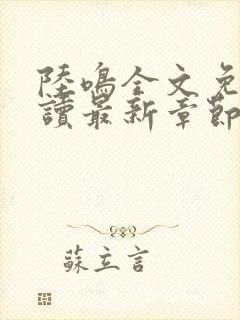 陸鳴全文免
讀最新章節
蘇立言